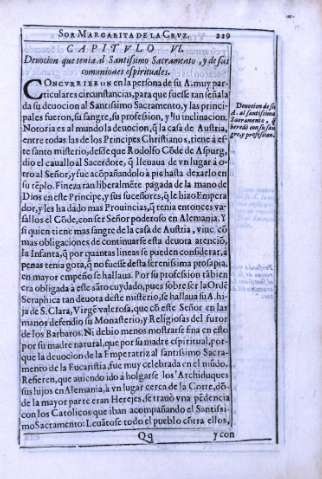 SOR MARGARITA DE LA CRVZ. 229
CAPITVLO VI.
Deuocion que tenia al Santissimo Sacramento, y de sus
comuniones espirituales.
CONCVRRIERON en la persona de su A. muy par-
ticulares circunstancias, para que fuesse tan señala
da su deuocion al Santissimo Sacramento, y las princi-
pales fueron, su sangre, su profession, y su inclinacion.
Notoria es al mundo la deuocion, q̃ la casa de Austria,
entre todas las de los Principes Christianos, tiene a es-
te santo misterio, desde que Rodolfo Cõde de Aspurg,
dio el cauallo al Sacerdote, q̃ lleuaua de vn lugar a o-
tro al Señor, y fue acõpañandolo à pie hasta dexarlo en
su tẽplo. Fineza tan liberalmẽte pagada de la mano de
Dios en este Principe, y sus sucessores, q̃ le hizo Empera-
dor, y les ha dado mas Prouincias, q̃ tenia entonces va-
sallos el Cõde, con ser Señor poderoso en Alemania. Y
si quien tiene mas sangre de la casa de Austria, viue cõ
mas obligaciones de continuar esta deuota atenciõ,
la Infanta, q̃ por quantas lineas se pueden considerar, a
penas tenia gota, q̃ no fuesse desta serenissima prosapia,
en mayor empeño se hallaua. Por su profession tãbien
era obligada à este sãto cuydado, pues sobre ser la Ordẽ
Seraphica tan deuota deste misterio, se hallaua su A. hi-
ja de S. Clara, Virgẽ valerosa, que cõ este Señor en las
manos defendio su Monasterio, y Religiosas del furor
de los Barbaros. Ni debio menos mostrarse fina en esto
por su madre natural, que por su madre espiritual, por-
que la deuocion de la Emperatriz al santissimo Sacra-
mento de la Eucaristia, fue muy celebrada en el mũdo.
Refieren, que auiendo ido à holgarse los Archiduques
sus hijos en Alemania, à vn lugar cerca de la Corte, dõ-
de la mayor parte eran Herejes, se trauò vna pẽdencia
con los Catolicos que iban acompañando el Santissi-
mo Sacramento: Leuãtose todo el pueblo cõtra ellos,
Qq y con
Deuocion de su
A. al santissimo
Sacramento, q̃
heredò con su san
gre, y profession.